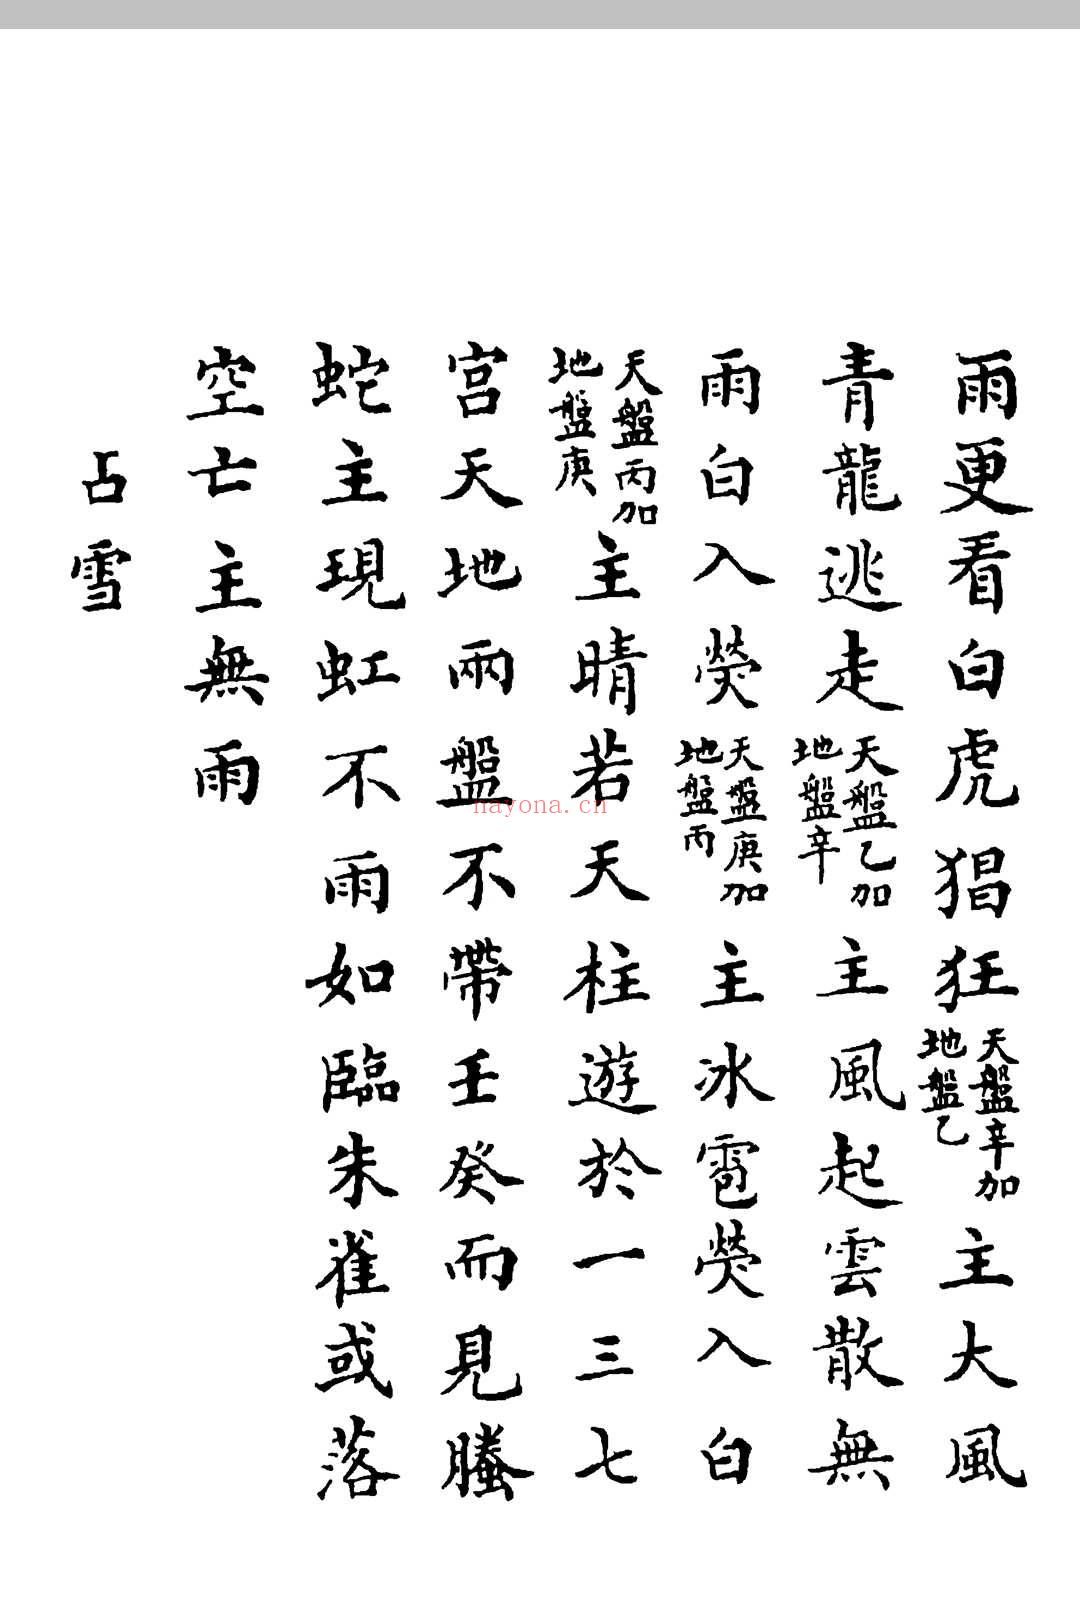 雨更看白虎猖狂天盤辛加地盤乙主大風
青龍逃走天盤乙加地盤辛主風起雲散無
雨白入熒天盤庚加地盤丙主冰雹熒入白
天盤丙加地盤庚主晴若天柱遊於一三七
宮天地兩盤不帶壬癸而見螣
蛇主現虹不雨如臨朱雀或落
空亡主無雨
占雪
nayona.cn